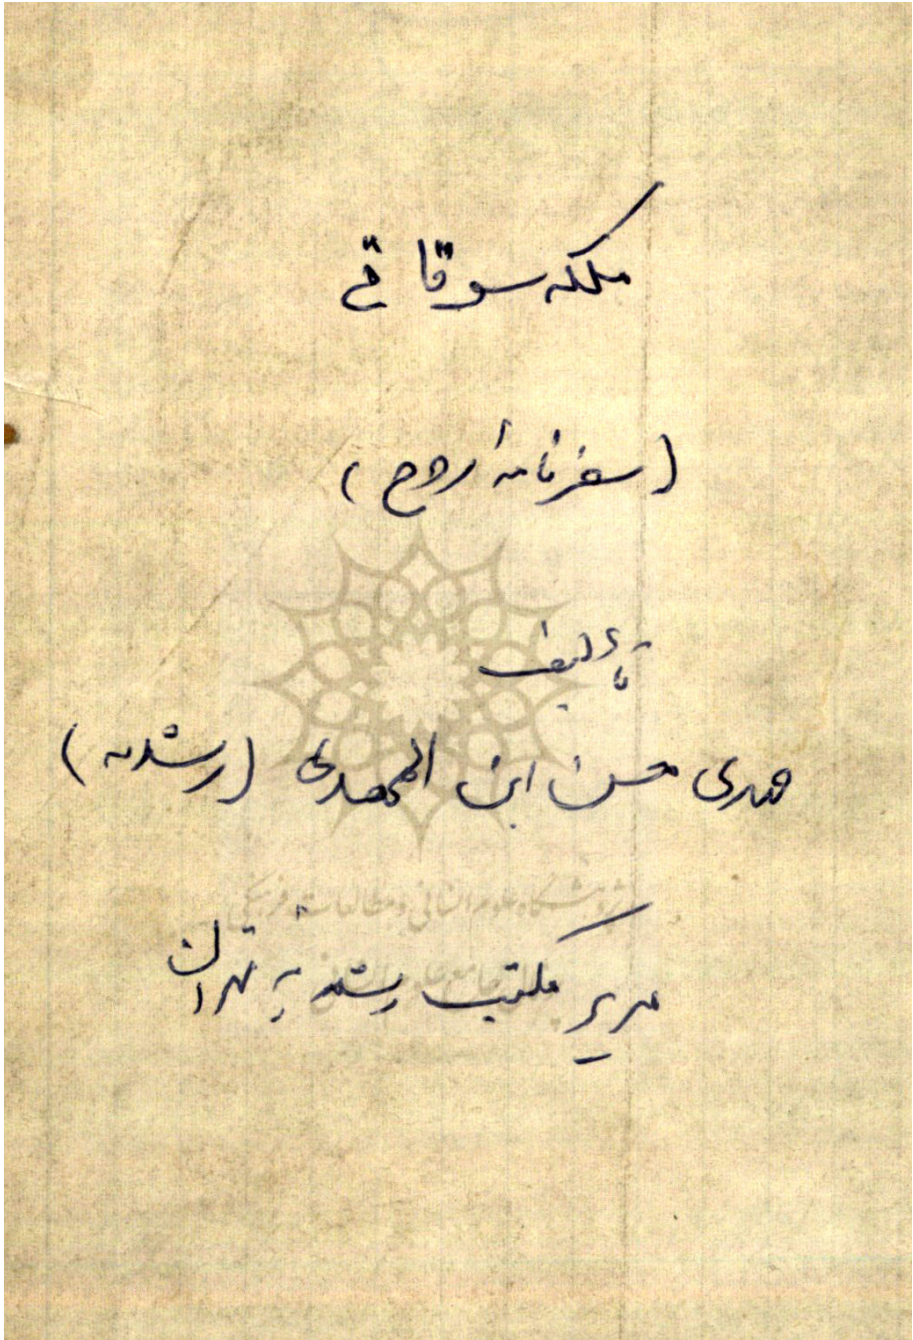 مکه سوقاتی
(سفرنامه اروج)
تاءلیف
مهدی حسن ابن المهدی (رشدیه)
پژوهشگاه علوم انسانی و مطالعات فرهنگی
جامع علوم انسانی
مدیر مکتب رشدیه تهران